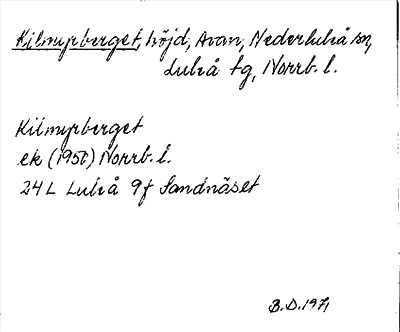 Kilmyrberget, höjd, Avan, Nederluleå sn,
Luleå tg, Norrb. l.
Kilmyrberget
ek (1950) Norrb. l.
24L Luleå 9f Sandnäset
B.D. 1971